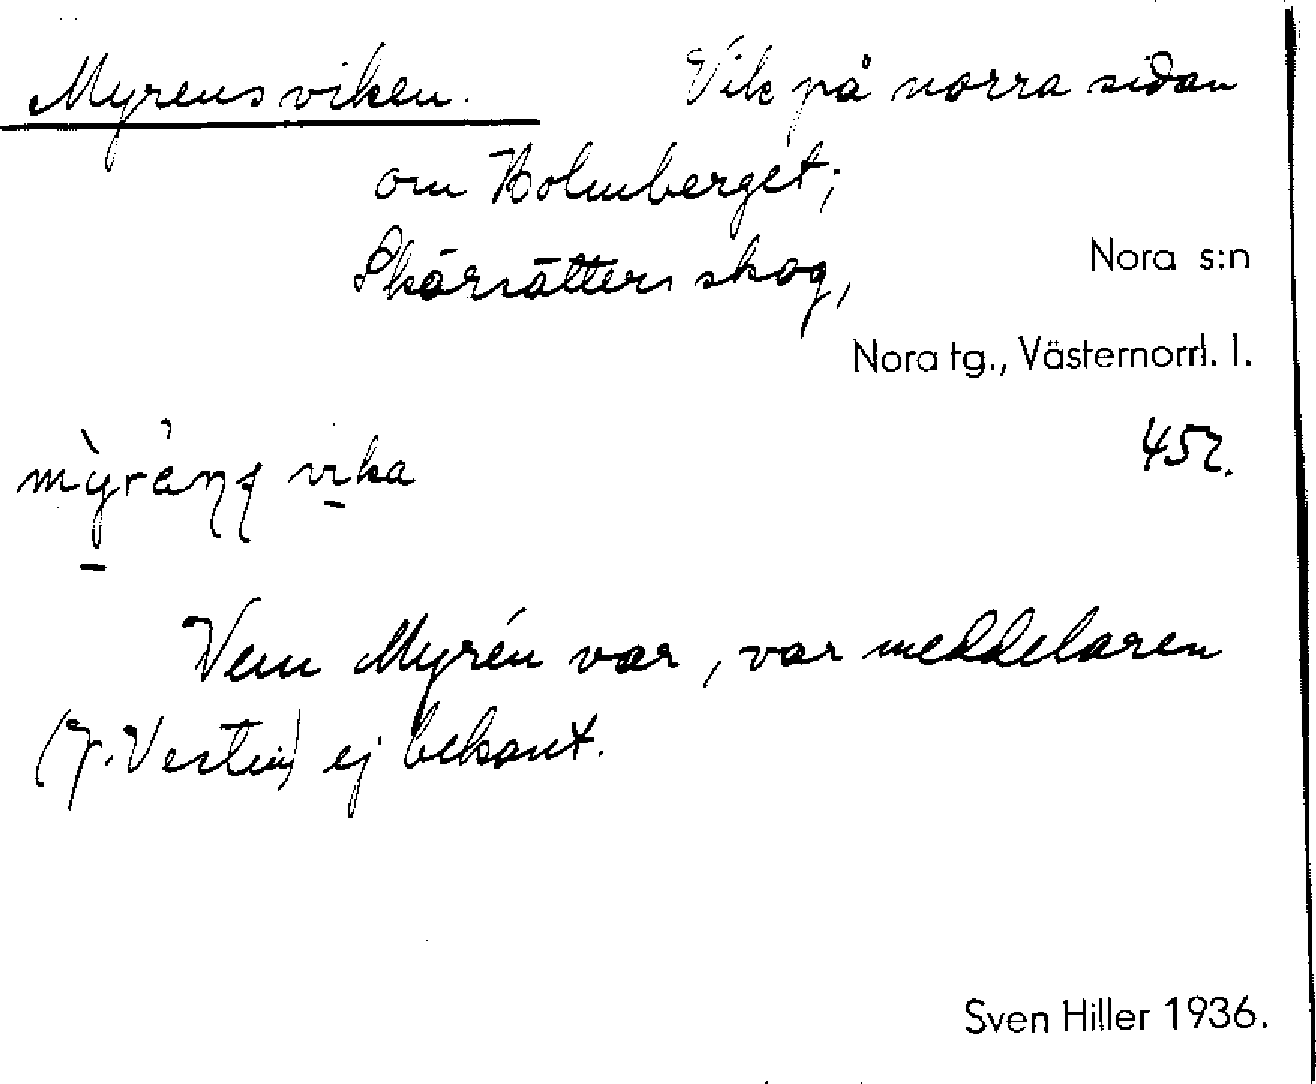 Myrensviken. Vik på norra sidan
om Holmberget;
Skärsätters skog,
Nora s:n
Nora tg., Västernorrl. l.
457.
vika
Vem Myrén var, var meddelaren
(J. Vestin) ej bekant.
Sven Hiller 1936.